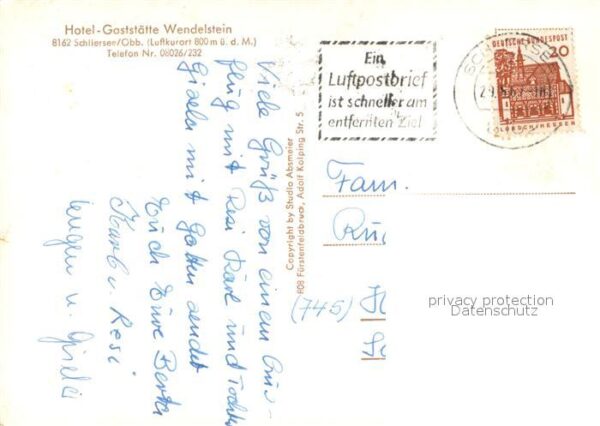 Hotel-Gaststätte Wendelstein
8162 Schliersee/Obb. (Luftkurort 800 m ü. d. M.)
Telefon Nr. 08026/232
Viele Grüße von einem Aus-
flug mit Resi Karl und Tochter
Gisela mit Gatten sendet
Euch Eure Berta
Karl u. Resi
u. Gisela
Copyright by Studio Absmeier
808 Fürstenfeldbruck, Adolf Kolping Str. 5
Ein
Luftpostbrief
ist schneller am
entfernten Ziel
DEUTSCHE BUNDESPOST
20
LORSCH/HESSEN
Fam.
(745)
privacy protection
Datenschutz